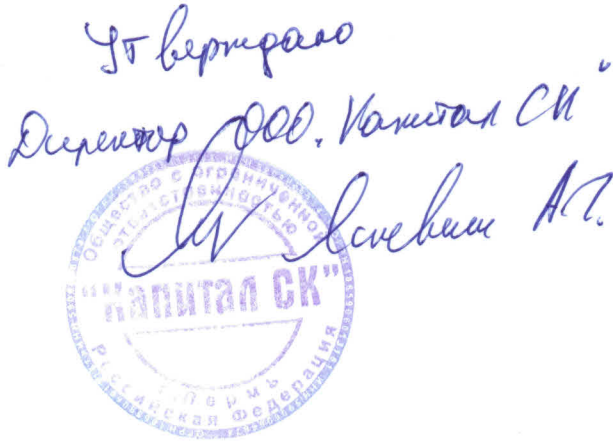 Утверждаю
Директор ООО "Капитал СК"
А.Г.
Общество с ограниченной
ответственностью
"Капитал СК"
г. Пермь
Российская Федерация